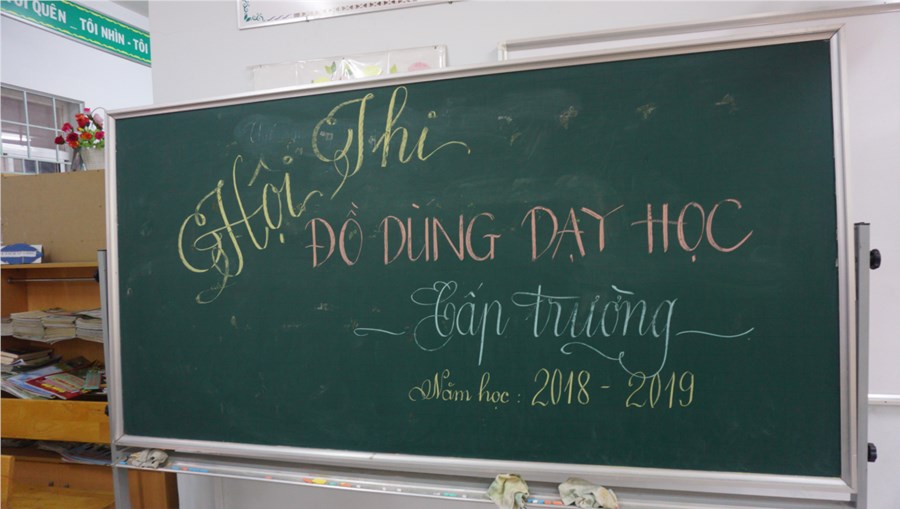 QUÊN _ TÔI NHÌN - TÔI
Hội Thi
ĐỒ DÙNG DẠY HỌC
Cấp trường
Năm học : 2018 - 2019